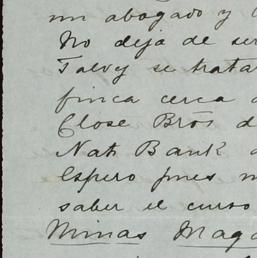 mi abogado y
No deja de ser
Talvy se trata
finca cerca
Close Bros d
Nat. Bank
Espero pues m
saber el curso
Minas Mag